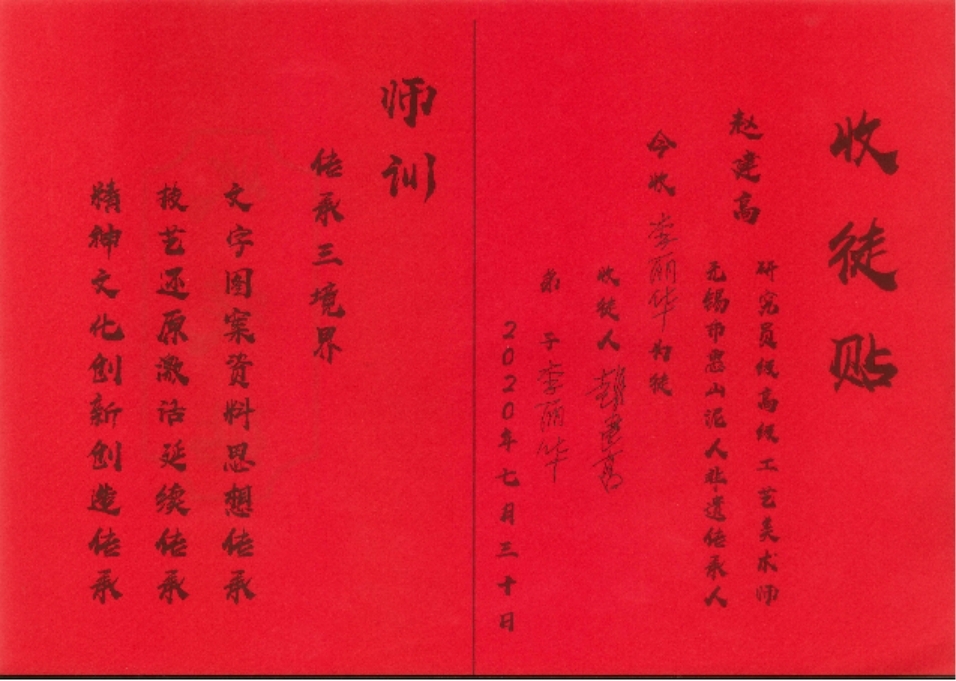 收徒贴
赵建高
研究员级高级工艺美术师
无锡市惠山泥人非遗传承人
今收李丽华为徒
收徒人 趙建高
弟子 李丽华
2020年七月三十日
师训
传承三境界
文字图案资料思想传承
技艺还原激活延续传承
精神文化创新创造传承